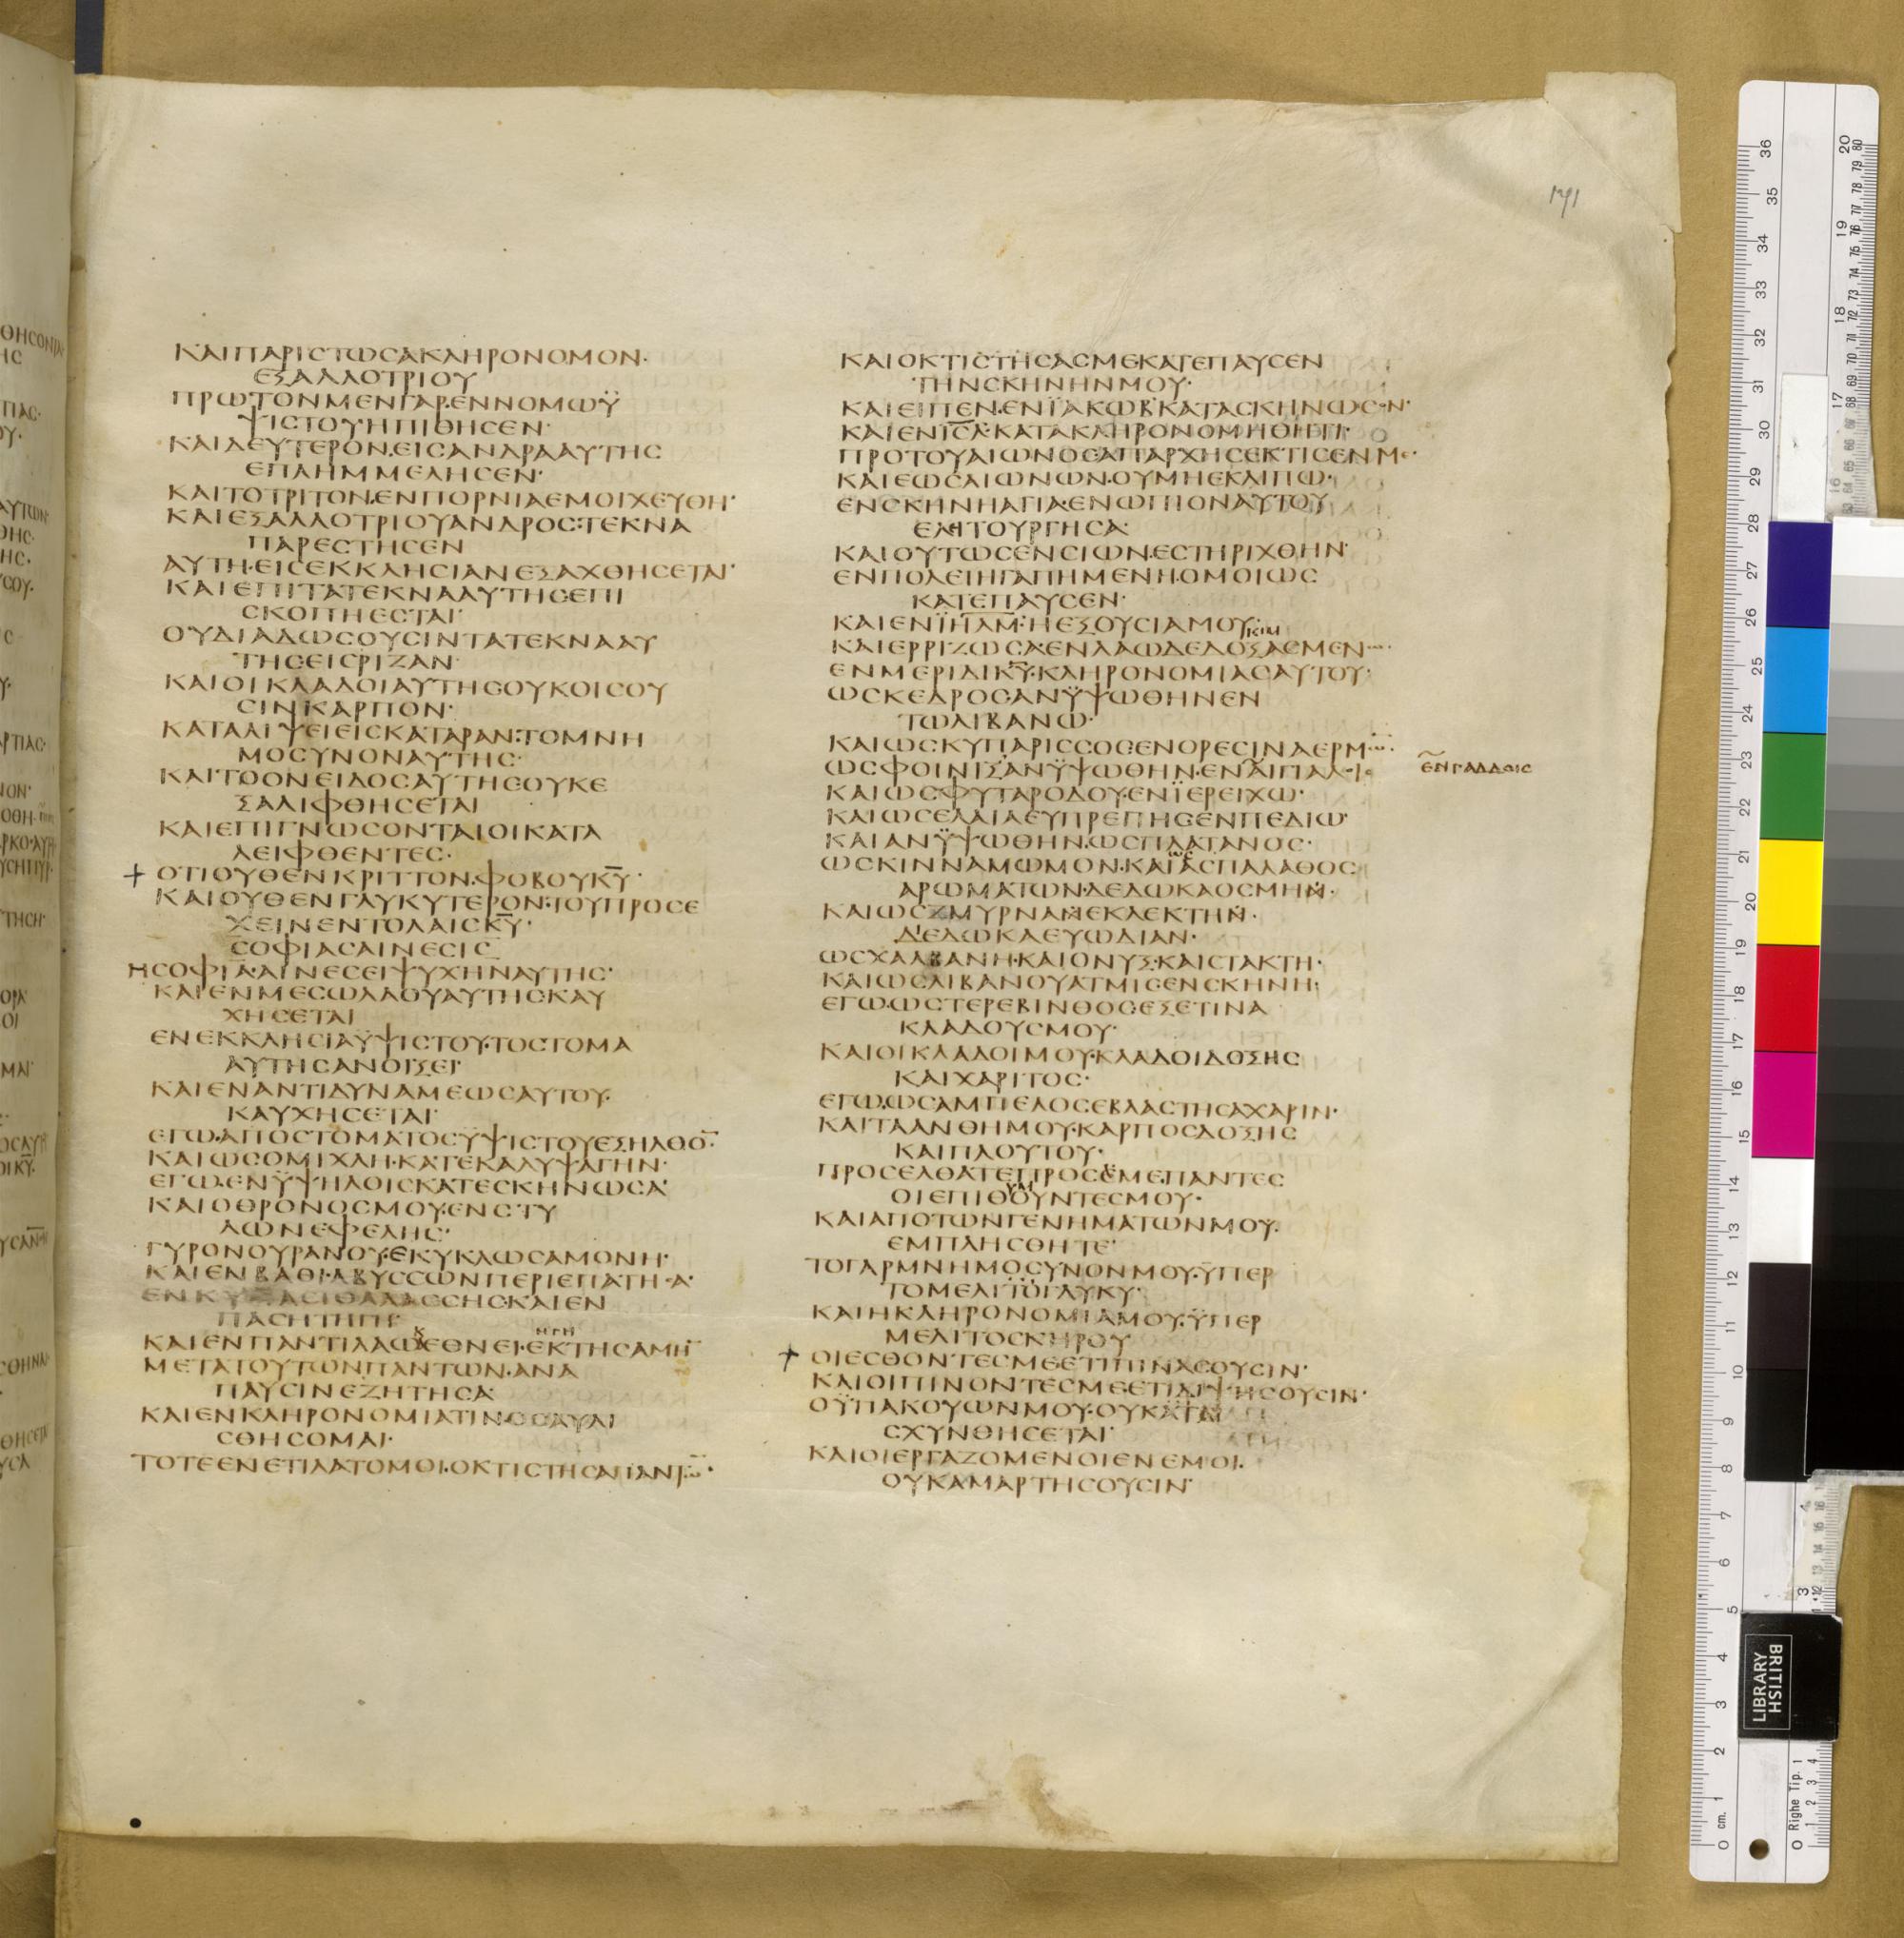 ΚΑΙΠΑΡΙCΤΩCΑΚΛΗΡΟΝΟΜΟΝ·
ΕΞΑΛΛΟΤΡΙΟΥ
ΠΡΩΤΟΝΜΕΝΓΑΡ·ΕΝΝΟΜΩΫ
ΨΙCΤΟΥΗΠΙΘΗCΕΝ·
ΚΑΙΔΕΥΤΕΡΟΝ·ΕΙCΑΝΔΡΑΑΥΤΗC
ΕΠΛΗΜΜΕΛΗCΕΝ·
ΚΑΙΤΟΤΡΙΤΟΝ·ΕΝΠΟΡΝΙΑΕΜΟΙΧΕΥΘΗ·
ΚΑΙΕΞΑΛΛΟΤΡΙΟΥΑΝΔΡΟC:ΤΕΚΝΑ
ΠΑΡΕCΤΗCΕΝ
ΑΥΤΗ·ΕΙCΕΚΚΛΗCΙΑΝΕΞΑΧΘΗCΕΤΑΙ·
ΚΑΙΕΠΙΤΑΤΕΚΝΑΑΥΤΗCΕΠΙ
CΚΟΠΗΕCΤΑΙ·
ΟΥΔΙΑΔΩCΟΥCΙΝΤΑΤΕΚΝΑΑΥ
ΤΗCΕΙCΡΙΖΑΝ·
ΚΑΙΟΙΚΛΑΔΟΙΑΥΤΗCΟΥΚΟΙCΟΥ
CΙΝΚΑΡΠΟΝ·
ΚΑΤΑΛΙΨΕΙΕΙCΚΑΤΑΡΑΝ:ΤΟΜΝΗ
ΜΟCΥΝΟΝΑΥΤΗC·
ΚΑΙΤΟΟΝΕΙΔΟCΑΥΤΗCΟΥΚΕ
ΞΑΛΙΦΘΗCΕΤΑΙ
ΚΑΙΕΠΙΓΝΩCΟΝΤΑΙΟΙΚΑΤΑ
ΛΕΙΦΘΕΝΤΕC·
ΟΤΙΟΥΘΕΝΚΡΙΤΤΟΝ·ΦΟΒΟΥΚΥ̅·
ΚΑΙΟΥΘΕΝΓΛΥΚΥΤΕΡΟΝ:ΤΟΥΠΡΟCΕ
ΧΕΙΝΕΝΤΟΛΑΙCΚΥ̅·
CΟΦΙΑCΑΙΝΕCΙC
ΗCΟΦΙΑ·ΑΙΝΕCΕΙΨΥΧΗΝΑΥΤΗC·
ΚΑΙΕΝΜΕCΩΛΑΟΥΑΥΤΗCΚΑΥ
ΧΗCΕΤΑΙ
ΕΝΕΚΚΛΗCΙΑΫΨΙCΤΟΥ·ΤΟCΤΟΜΑ
ΑΥΤΗCΑΝΟΙΞΕΙ·
ΚΑΙΕΝΑΝΤΙΔΥΝΑΜΕΩCΑΥΤΟΥ·
ΚΑΥΧΗCΕΤΑΙ·
ΕΓΩ·ΑΠΟCΤΟΜΑΤΟCΫΨΙCΤΟΥΕΞΗΛΘΟ̅·
ΚΑΙΩCΟΜΙΧΛΗ·ΚΑΤΕΚΑΛΥΨΑΓΗΝ·
ΕΓΩ·ΕΝΫΨΗΛΟΙCΚΑΤΕCΚΗΝΩCΑ·
ΚΑΙΟΘΡΟΝΟCΜΟΥ·ΕΝCΤΥ
ΛΩΝΕΦΕΛΗC·
ΓΥΡΟΝΟΥΡΑΝΟΥ·ΕΚΥΚΛΩCΑΜΟΝΗ·
ΚΑΙΕΝΒΑΘΙ·ΑΒΥCCΩΝΠΕΡΙΕΠΑΤΗCΑ·
ΕΝΚΥΜΑCΙΘΑΛΑCCΗC·ΚΑΙΕΝ
ΠΑCΗΤΗΓΗ·
ΚΑΙΕΝΠΑΝΤΙΛΑΩΚΕΘΝΕΙ·ΕΚΤΗCΑΜΗ̅
ΗΓΗ
ΜΕΤΑΤΟΥΤΩΝΠΑΝΤΩΝ·ΑΝΑ
ΠΑΥCΙΝΕΖΗΤΗCΑ·
ΚΑΙΕΝΚΛΗΡΟΝΟΜΙΑΤΙΝΟCΑΥΛΙ
CΘΗCΟΜΑΙ·
ΤΟΤΕΕΝΕΤΙΛΑΤΟΜΟΙ·ΟΚΤΙCΤΗCΑΠΑΝΤΩ̅·
ΚΑΙΟΚΤΙCΤΗCΑCΜΕΚΑΤΕΠΑΥCΕΝ
ΤΗΝCΚΗΝΗΝΜΟΥ·
ΚΑΙΕΙΠΕΝ·ΕΝΪΑΚΩΒ·ΚΑΤΑCΚΗΝΩCΟΝ·
ΚΑΙΕΝΙC̅Λ·ΚΑΤΑΚΛΗΡΟΝΟΜΗΘΗΤΙ·
ΠΡΟΤΟΥΑΙΩΝΟCΑΠΑΡΧΗCΕΚΤΙCΕΝΜΕ·
ΚΑΙΕΩCΑΙΩΝΩΝ·ΟΥΜΗΕΚΛΙΠΩ·
ΕΝCΚΗΝΗΑΓΙΑ·ΕΝΩΠΙΟΝΑΥΤΟΥ
ΕΛΙΤΟΥΡΓΗCΑ·
ΚΑΙΟΥΤΩCΕΝCΙΩΝ·ΕCΤΗΡΙΧΘΗΝ·
ΕΝΠΟΛΕΙΗΓΑΠΗΜΕΝΗ·ΟΜΟΙΩC
ΚΑΤΕΠΑΥCΕΝ·
ΚΑΙΕΝΪΗ̅Λ̅Μ:ΗΕΞΟΥCΙΑΜΟΥ·
ΚΑΙΕΡΡΙΖΩCΑ·ΕΝΛΑΩΔΕΔΟΞΑCΜΕΝΩ·
ΕΝΜΕΡΙΔΙΚΥ̅·ΚΛΗΡΟΝΟΜΙΑCΑΥΤΟΥ·
ΩCΚΕΔΡΟC·ΑΝΫΨΩΘΗΝΕΝ
ΤΩΛΙΒΑΝΩ·
ΚΑΙΩCΚΥΠΑΡΙCCΟC·ΕΝΟΡΕCΙΝΑΕΡΜΩ̅·
ΩCΦΟΙΝΙΞΑΝΫΨΩΘΗΝ·ΕΝΑΙΓΙΑΛΟΙC
ΕΝΓΑΔΔΟΙC
ΚΑΙΩCΦΥΤΑΡΟΔΟΥ·ΕΝΪΕΡΕΙΧΩ·
ΚΑΙΩCΕΛΑΙΑΕΥΠΡΕΠΗCΕΝΠΕΔΙΩ·
ΚΑΙΑΝΫΨΩΘΗΝ·ΩCΠΛΑΤΑΝΟC·
ΩCΚΙΝΝΑΜΩΜΟΝ·ΚΑΙΑCΠΑΛΑΘΟC
ΑΡΩΜΑΤΩΝ·ΔΕΔΩΚΑΟCΜΗΝ·
ΚΑΙΩCΖΜΥΡΝΑΝΕΚΛΕΚΤΗΝ·
ΔΕΔΩΚΑΕΥΩΔΙΑΝ·
ΩCΧΑΛΒΑΝΗ·ΚΑΙΟΝΥΞ·ΚΑΙCΤΑΚΤΗ·
ΚΑΙΩCΛΙΒΑΝΟΥΑΤΜΙCΕΝCΚΗΝΗ·
ΕΓΩ·ΩCΤΕΡΕΒΙΝΘΟC·ΕΞΕΤΙΝΑ
ΚΛΑΔΟΥCΜΟΥ·
ΚΑΙΟΙΚΛΑΔΟΙΜΟΥ·ΚΛΑΔΟΙΔΟΞΗC
ΚΑΙΧΑΡΙΤΟC·
ΕΓΩ·ΩCΑΜΠΕΛΟCΕΒΛΑCΤΗCΑΧΑΡΙΝ·
ΚΑΙΤΑΑΝΘΗΜΟΥ·ΚΑΡΠΟCΔΟΞΗC
ΚΑΙΠΛΟΥΤΟΥ·
ΠΡΟCΕΛΘΑΤΕΠΡΟCΕΜΕΠΑΝΤΕC
ΟΙΕΠΙΘΥΜΟΥΝΤΕCΜΟΥ·
ΚΑΙΑΠΟΤΩΝΓΕΝΗΜΑΤΩΝΜΟΥ·
ΕΜΠΛΗCΘΗΤΕ·
ΤΟΓΑΡΜΝΗΜΟCΥΝΟΝΜΟΥ·ΫΠΕΡ
ΤΟΜΕΛΙΤΟΓΛΥΚΥ·
ΚΑΙΗΚΛΗΡΟΝΟΜΙΑΜΟΥ·ΫΠΕΡ
ΜΕΛΙΤΟCΚΗΡΟΥ
ΟΙΕCΘΟΝΤΕCΜΕΕΤΙΠΙΝΑCΟΥCΙΝ·
ΚΑΙΟΙΠΙΝΟΝΤΕCΜΕ·ΕΤΙΔΙΨΗCΟΥCΙΝ·
ΟΫΠΑΚΟΥΩΝΜΟΥ·ΟΥΚ
CΧΥΝΘΗCΕΤΑΙ·
ΚΑΙΟΙΕΡΓΑΖΟΜΕΝΟΙΕΝΕΜΟΙ·
ΟΥΚΑΜΑΡΤΗCΟΥCΙΝ·